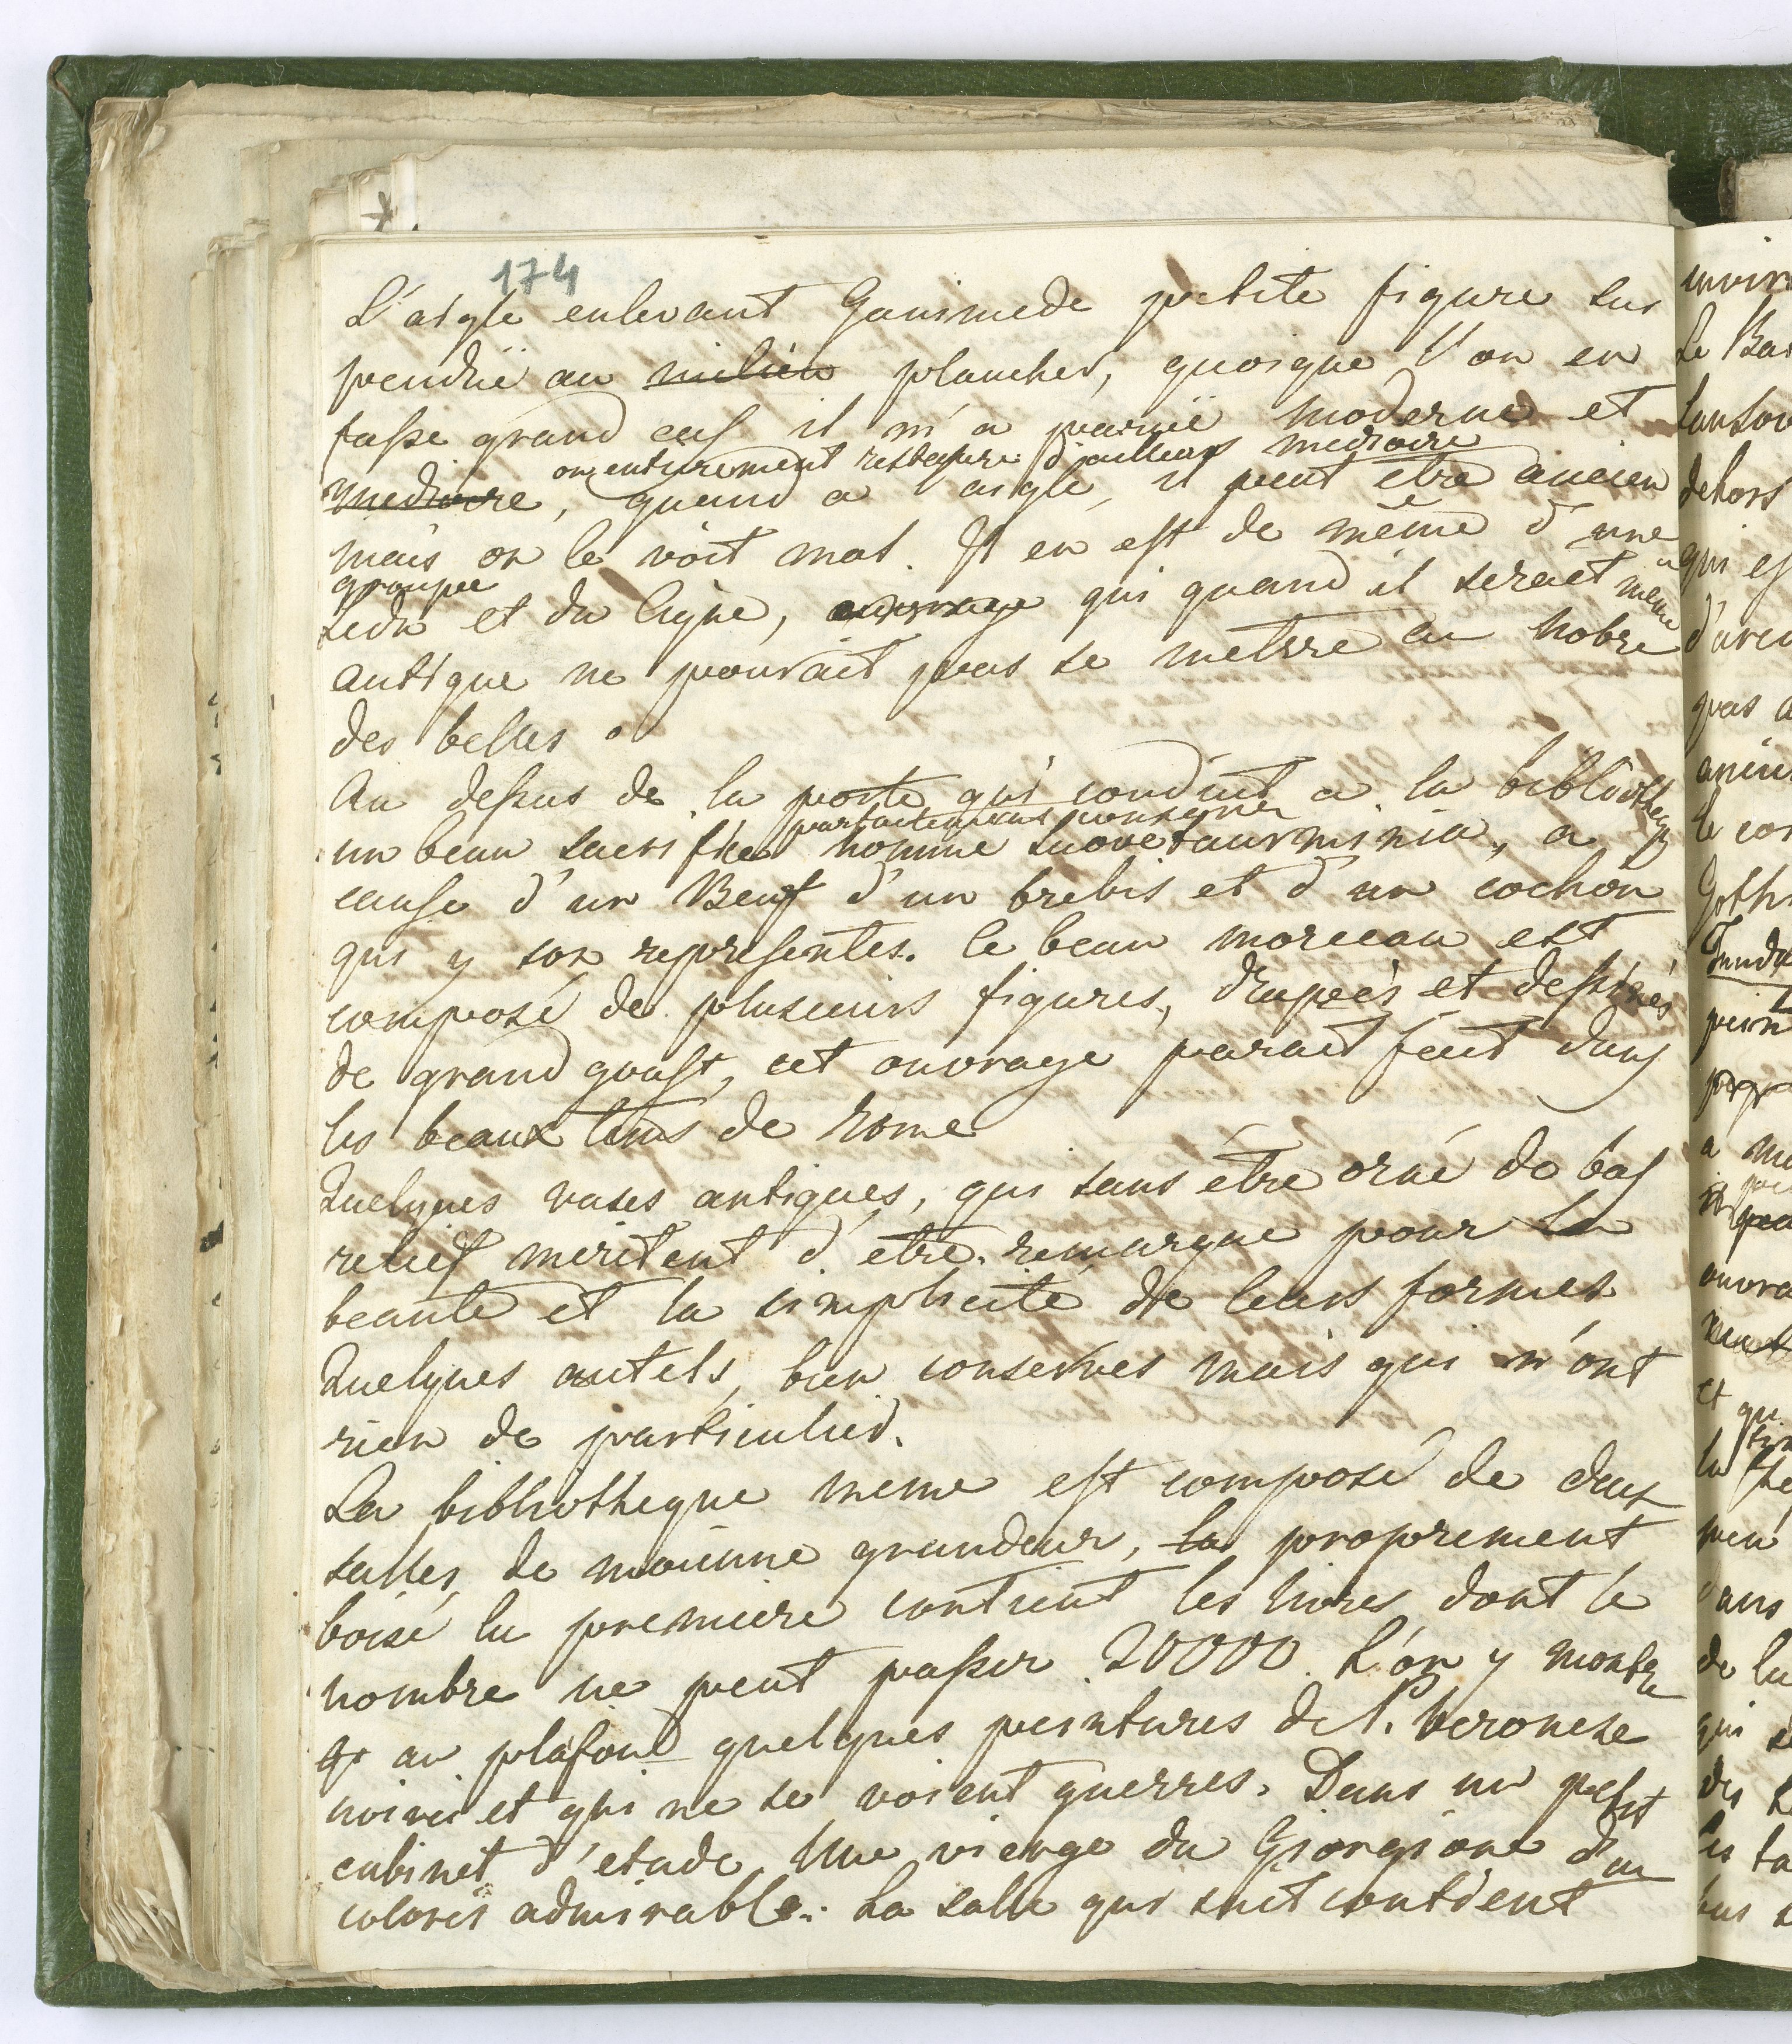 174
L'aigle enlevant Ganimede petite figure sus
pendüe au milieu plancher, quoique l'on en
fasse grand cas il m'a parüe moderne et
ou entierement restauré d'ailleurs mediocre
mediocre, quand a l'aigle, il peut être ancien
mais on le voit mal. Il en est de même d'une
groupe
Leda et du Cigne, ouvrage qui quand il serait même
antique ne pourait pas se mettre au nobre
des belles.
Au dessus de la porte qui conduit a la biblioth
parfaitement conservé
un beau sacrifice nommé suovetaurminia, a
cause d'un Beuf d'un brebis et d'un cochon
qui y son representes. Ce beau morceau est
composé de plusieurs figures, drapées et dessinés
de grand goust, cet ouvrage parait fait dans
les beaux tems de Rome
Quelques vases antiques, qui sans être orné de bas
relief meritent d'etre remarque pour la
beauté et la simplicité de leurs formes
Quelques autels, bien conserves mais qui n'ont
rien de particulier.
La bibliotheque meme est composé de deux
salles, de moienne grandeur, la proprement
boisé la premiere contient les livres dont le
nombre ne peut passer 20000. L'on y montre
au plafond quelques peintures de P. Veronese
noircis et qui ne se voient guerres. Dans un petit
cabinet d'etude Une vierge du Giorgione d'un
coloris admirable. La salle qui suit contient